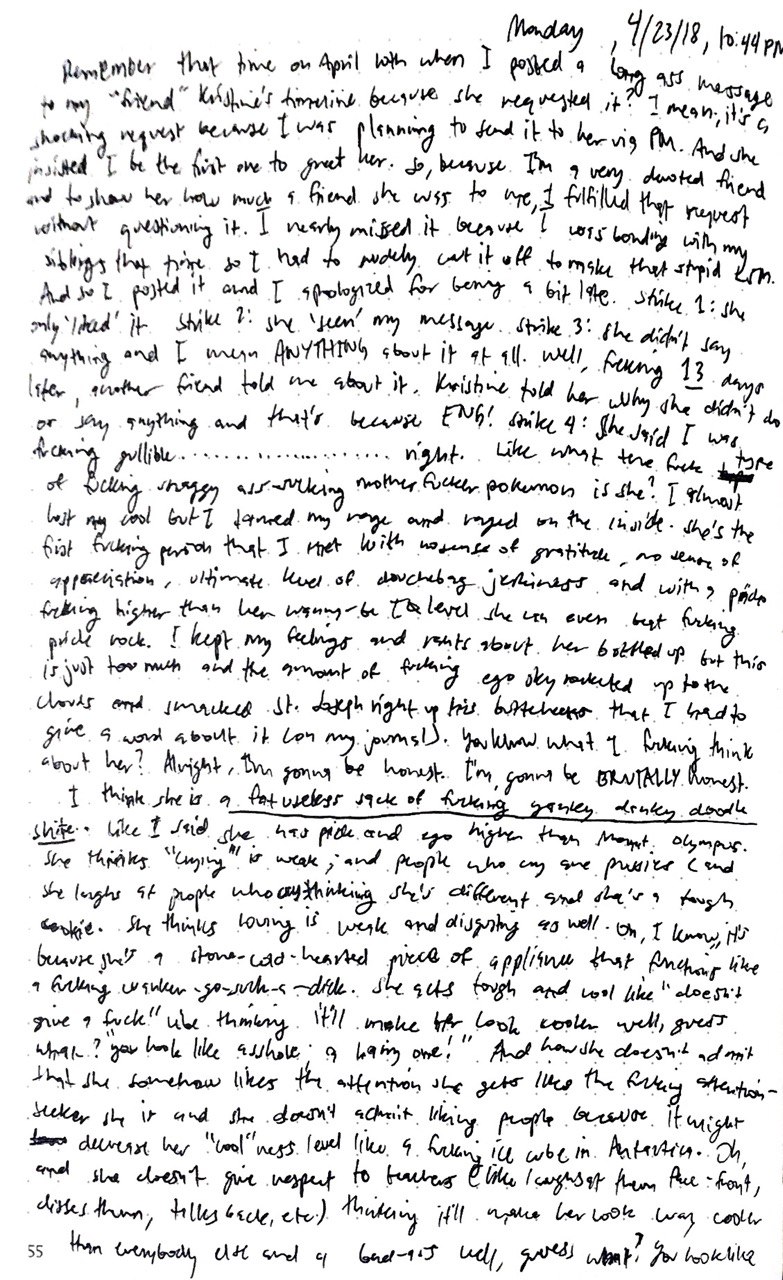 Monday, 4/23/18, 10:44 PM
Remember that time on April 10th when I posted a long ass message
to my "friend" Kristine's timeline because she requested it? I mean, it's a
shocking request because I was planning to send it to her via PM. And she
insisted I be the first one to greet her. So, because I'm a very devoted friend
and to show her how much a friend she was to me, I fulfilled that request
without questioning it. I nearly missed it because I was bonding with my
siblings that time so I had to rudely cut it off to make that stupid
And so I posted it and I apologized for being a bit late. Strike 1: she
only 'liked' it. Strike 2: she 'seen' my message. Strike 3: she didn't say
anything and I mean ANYTHING about it at all. Well, fucking 13 days
later, another friend told me about it. Kristine told her why she didn't do
or say anything and that's because ENG! Strike 4: She said I was
fucking gullible..................... right. Like what the fuck type
of fucking shaggy ass-sucking mother fucker pokemon is she? I almost
lost my cool but I tamed my rage and raged on the inside. She's the
first fucking person that I met with no sense of gratitude, no sense of
appreciation, ultimate level of douchebag jerkiness and with a pride
fucking higher than her wanna-be IQ level she can even beat fucking
pride rock. I kept my feelings and rants about her bottled up but this
is just too much and the amount of fucking ego sky rocketed up to the
clouds and smacked St. Joseph right up his buttcheeks that I had to
give a word about it (on my journal). You know what I fucking think
about her? Alright, I'm gonna be honest. I'm gonna be BRUTALLY honest.
I think she is a fat useless sack of fucking yankey dankey doodle
shite. Like I said she has pride and ego higher than Mount Olympus.
She thinks "crying" is weak, and people who cry are pussies (and
she laughs at people who cry thinking she's different and she's a tough
cookie. She thinks loving is weak and disgusting as well. Oh, I know, it's
because she's a stone-cold-hearted piece of appliance that functions like
a fucking wanker-go-suck-a-dick. She acts tough and cool like "doesn't
give a fuck" vibe thinking it'll make her look cooler well, guess
what? "you look like asshole; a hairy one!" And how she doesn't admit
that she somehow likes the attention she gets like the fucking attention-
seeker she is and she doesn't admit liking people because it might
decrease her "cool"ness level like a fucking ice cube in Antarctica. Oh,
and she doesn't give respect to teachers (like laughs at them face-front,
disses them, talks back, etc.) thinking it'll make her look way cooler
than everybody else and a bad-ass well, guess what? You look like
55